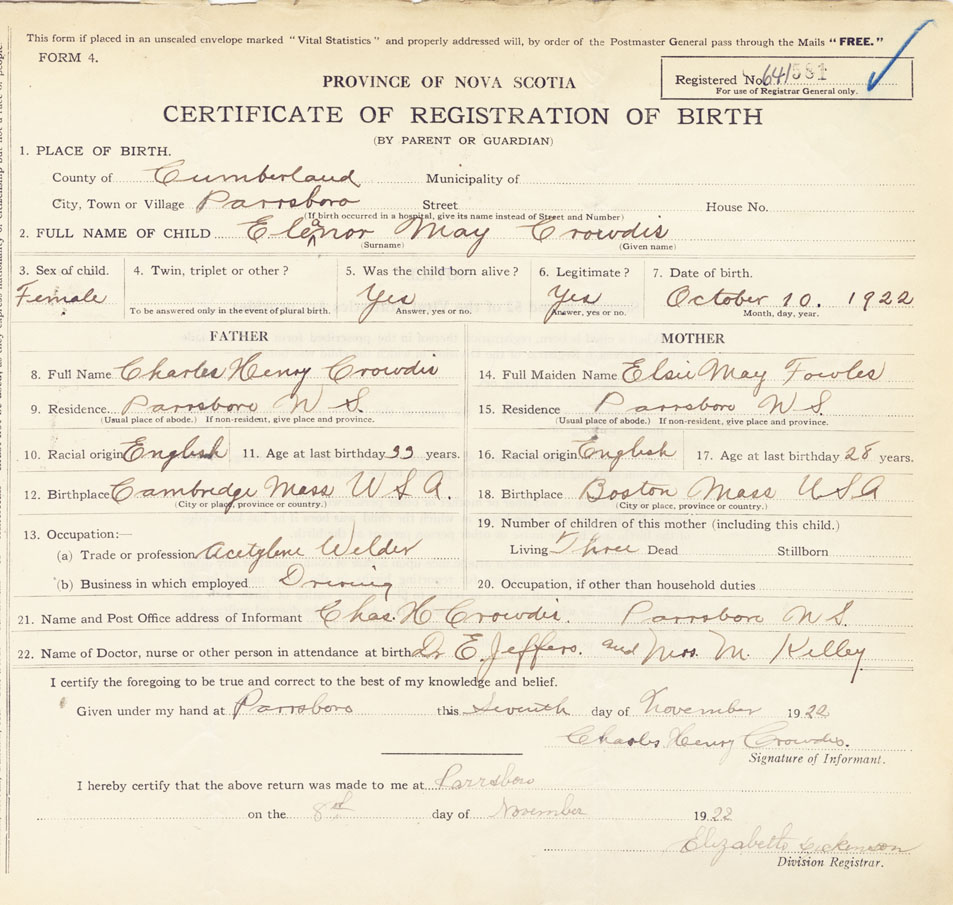 This form if placed in an unsealed envelope marked "Vital Statistics" and properly addressed will, by order of the Postmaster General pass through the Mails "FREE."
FORM 4.
PROVINCE OF NOVA SCOTIA
Registered No. 641581
For use of Registrar General only.
CERTIFICATE OF REGISTRATION OF BIRTH
(BY PARENT OR GUARDIAN)
1. PLACE OF BIRTH.
County of Cumberland Municipality of
City, Town or Village Parrsboro Street House No.
(If birth occurred in a hospital, give its name instead of Street and Number)
2. FULL NAME OF CHILD Eleanor May Crowdis
(Surname) (Given name)
3. Sex of child. 4. Twin, triplet or other? 5. Was the child born alive? 6. Legitimate? 7. Date of birth.
Female Yes Yes October 10. 1922
To be answered only in the event of plural birth. Answer, yes or no. Answer, yes or no. Month, day, year.
FATHER MOTHER
8. Full Name Charles Henry Crowdis 14. Full Maiden Name Elsie May Fowles
9. Residence. Parrsboro N S. 15. Residence Parrsboro N S.
(Usual place of abode.) If non-resident, give place and province. (Usual place of abode.) If non-resident, give place and province.
10. Racial origin English 11. Age at last birthday 33 years. 16. Racial origin English 17. Age at last birthday 28 years.
12. Birthplace Cambridge Mass U S A. 18. Birthplace Boston Mass U S A
(City or place, province or country.) (City or place, province or country.)
13. Occupation:— 19. Number of children of this mother (including this child.)
(a) Trade or profession Acetylene Welder Living Three Dead Stillborn
(b) Business in which employed Driving 20. Occupation, if other than household duties
21. Name and Post Office address of Informant Chas. H Crowdis. Parrsboro N S.
22. Name of Doctor, nurse or other person in attendance at birth Dr E. Jeffers. and Mrs. M. Kelley
I certify the foregoing to be true and correct to the best of my knowledge and belief.
Given under my hand at Parrsboro this Seventh day of November 1922
Charles Henry Crowdis.
Signature of Informant.
I hereby certify that the above return was made to me at Parrsboro
on the 8th day of November 1922
Elizabeth Dickenson
Division Registrar.